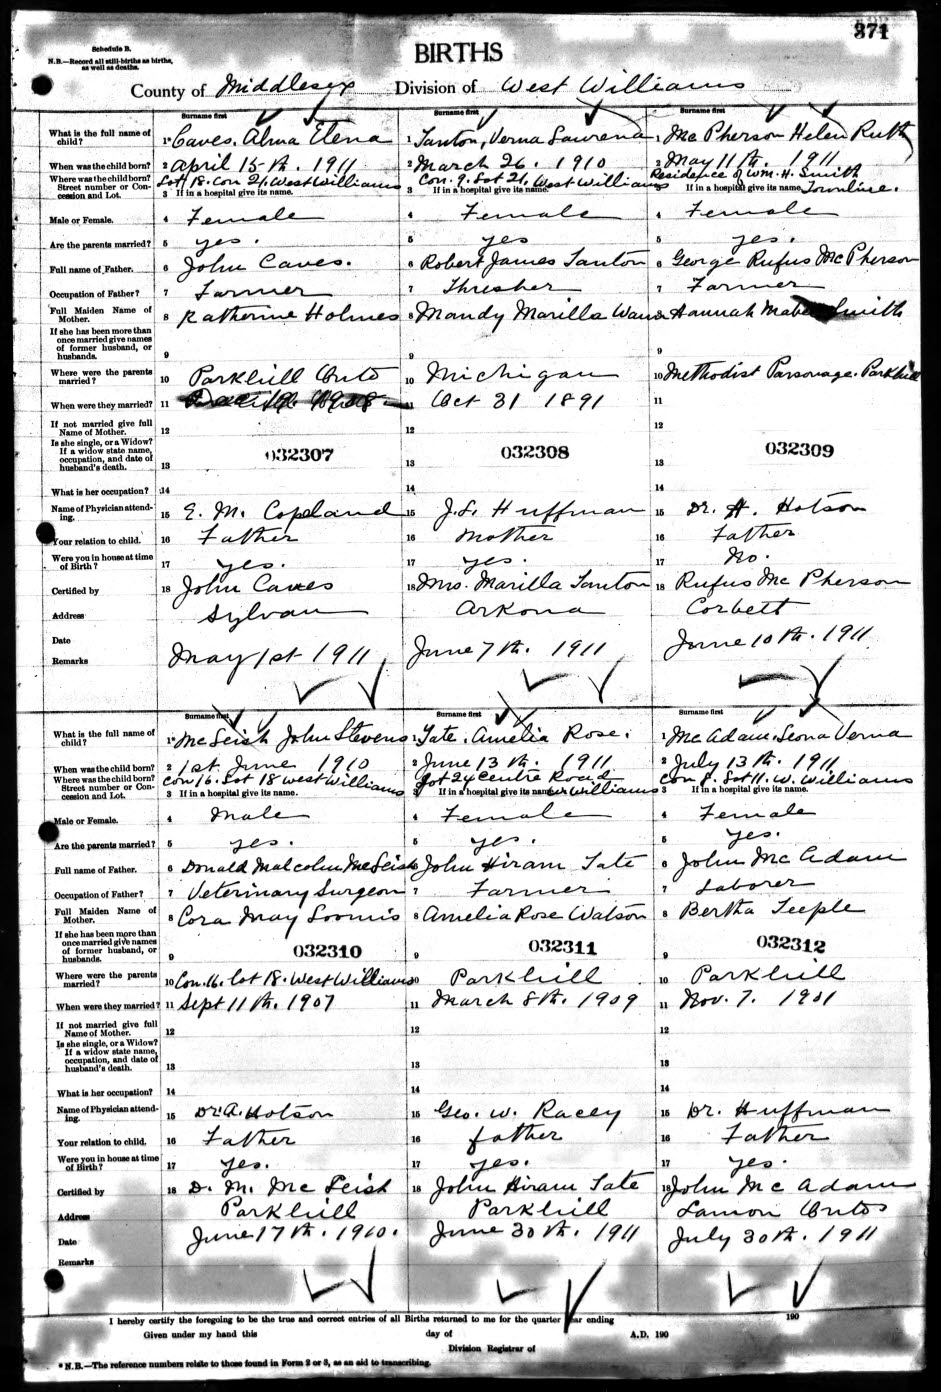 371
Schedule B.
N.B.—Record all still-births as births, as well as deaths.
BIRTHS
County of Middlesex Division of West Williams
Surname first Surname first Surname first
What is the full name of child? 1* Caves, Alma Elena 1 Tanton, Verna Laurena 1 McPherson Helen Ruth
When was the child born? 2 April 15th. 1911 2 March 26. 1910 2 May 11th. 1911
Where was the child born? Street number or Concession and Lot. Lot 18. Con 21. West Williams Con. 9. Lot 21. West Williams Residence of Wm. H. Smith
3 If in a hospital give its name. 3 If in a hospital give its name. If in a hospital give its name. Townline.
Male or Female. 4 Female 4 Female 4 Female
Are the parents married? 5 yes. 5 yes 5 yes.
Full name of Father. 6 John Caves. 6 Robert James Tanton 6 George Rufus McPherson
Occupation of Father? 7 Farmer 7 Thresher 7 Farmer
Full Maiden Name of Mother. 8 Katherine Holmes 8 Mandy Marilla 8 Hannah Mabel Smith
If she has been more than once married give names of former husband, or husbands. 9 9 9
Where were the parents married? 10 Parkhill Onto 10 Michigan 10 Methodist Parsonage. Parkhill
When were they married? 11 11 Oct 31 1891 11
If not married give full Name of Mother. 12 12 12
Is she single, or a Widow? If a widow state name, occupation, and date of husband's death. 13 032307 13 032308 13 032309
What is her occupation? 14 14 14
Name of Physician attending. 15 E. M. Copeland 15 J.L. Huffman 15 Dr. A. Hotson
Your relation to child. 16 Father 16 Mother 16 Father
Were you in house at time of Birth? 17 yes. 17 yes. 17 No.
Certified by 18 John Caves 18 Mrs. Marilla Tanton 18 Rufus McPherson
Address Sylvan Arkona Corbett
Date
Remarks May 1st 1911 June 7th. 1911 June 10th. 1911
Surname first Surname first Surname first
What is the full name of child? 1* McLeish John Stevens 1 Tate. Amelia Rose. 1 McAdam. Leona Verna
When was the child born? 2 1st. June 1910 2 June 13th. 1911 2 July 13th. 1911
Where was the child born? Street number or Concession and Lot. Con 16. Lot 18 West Williams Lot 24 Centre Road Con 8. Lot 11. W. Williams
3 If in a hospital give its name. 3 If in a hospital give its name. W Williams 3 If in a hospital give its name.
Male or Female. 4 Male 4 Female 4 Female
Are the parents married? 5 yes. 5 yes. 5 yes.
Full name of Father. 6 Donald Malcolm McLeish 6 John Hiram Tate 6 John McAdam
Occupation of Father? 7 Veterinary Surgeon 7 Farmer 7 Laborer
Full Maiden Name of Mother. 8 Cora May Loomis 8 Amelia Rose Watson 8 Bertha Teeple
If she has been more than once married give names of former husband, or husbands. 9 032310 9 032311 9 032312
Where were the parents married? 10 Con. 16. Lot 18. West Williams 10 Parkhill 10 Parkhill
When were they married? 11 Sept 11th. 1907 11 March 8th. 1909 11 Nov. 7. 1901
If not married give full Name of Mother. 12 12 12
Is she single, or a Widow? If a widow state name, occupation, and date of husband's death. 13 13 13
What is her occupation? 14 14 14
Name of Physician attending. 15 Dr. A. Hotson 15 Geo. W. Racey 15 Dr. Huffman
Your relation to child. 16 Father 16 father 16 Father
Were you in house at time of Birth? 17 yes. 17 yes. 17 yes.
Certified by 18 D. M. McLeish 18 John Hiram Tate 18 John McAdam
Address Parkhill Parkhill Lamon Onto
Date June 17th. 1910. June 30th. 1911 July 30th. 1911
Remarks
I hereby certify the foregoing to be the true and correct entries of all Births returned to me for the quarter year ending 190
Given under my hand this day of A.D. 190
Division Registrar of
*N.B.—The reference numbers relate to those found in Form 2 or 3, as an aid to transcribing.